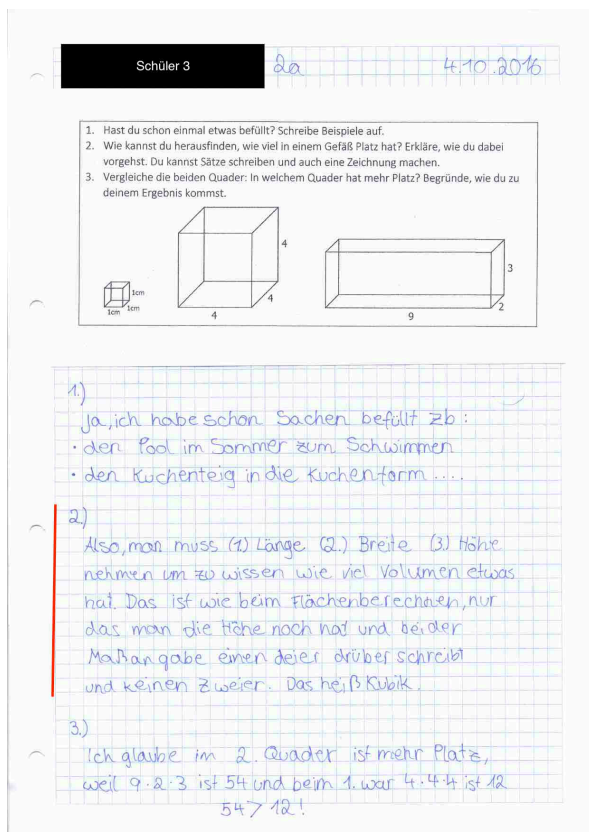 Schüler 3
2a
4.10.2016
1. Hast du schon einmal etwas befüllt? Schreibe Beispiele auf.
2. Wie kannst du herausfinden, wie viel in einem Gefäß Platz hat? Erkläre, wie du dabei
vorgehst. Du kannst Sätze schreiben und auch eine Zeichnung machen.
3. Vergleiche die beiden Quader: In welchem Quader hat mehr Platz? Begründe, wie du zu
deinem Ergebnis kommst.
1cm
1cm
1cm
4
4
4
3
2
9
1.)
Ja, ich habe schon Sachen befüllt zb:
· den Pool im Sommer zum Schwimmen
· den Kuchenteig in die Kuchenform ....
2.)
Also, man muss (1.) Länge (2.) Breite (3.) Höhe
nehmen um zu wissen wie viel Volumen etwas
hat. Das ist wie beim Flächenberechnen, nur
das man die Höhe noch hat und bei der
Maßangabe einen deier drüber schreibt
und keinen Zweier. Das heiß Kubik.
3.)
Ich glaube im 2. Quader ist mehr Platz,
weil 9·2·3 ist 54 und beim 1. war 4·4·4 ist 12
54 > 12!